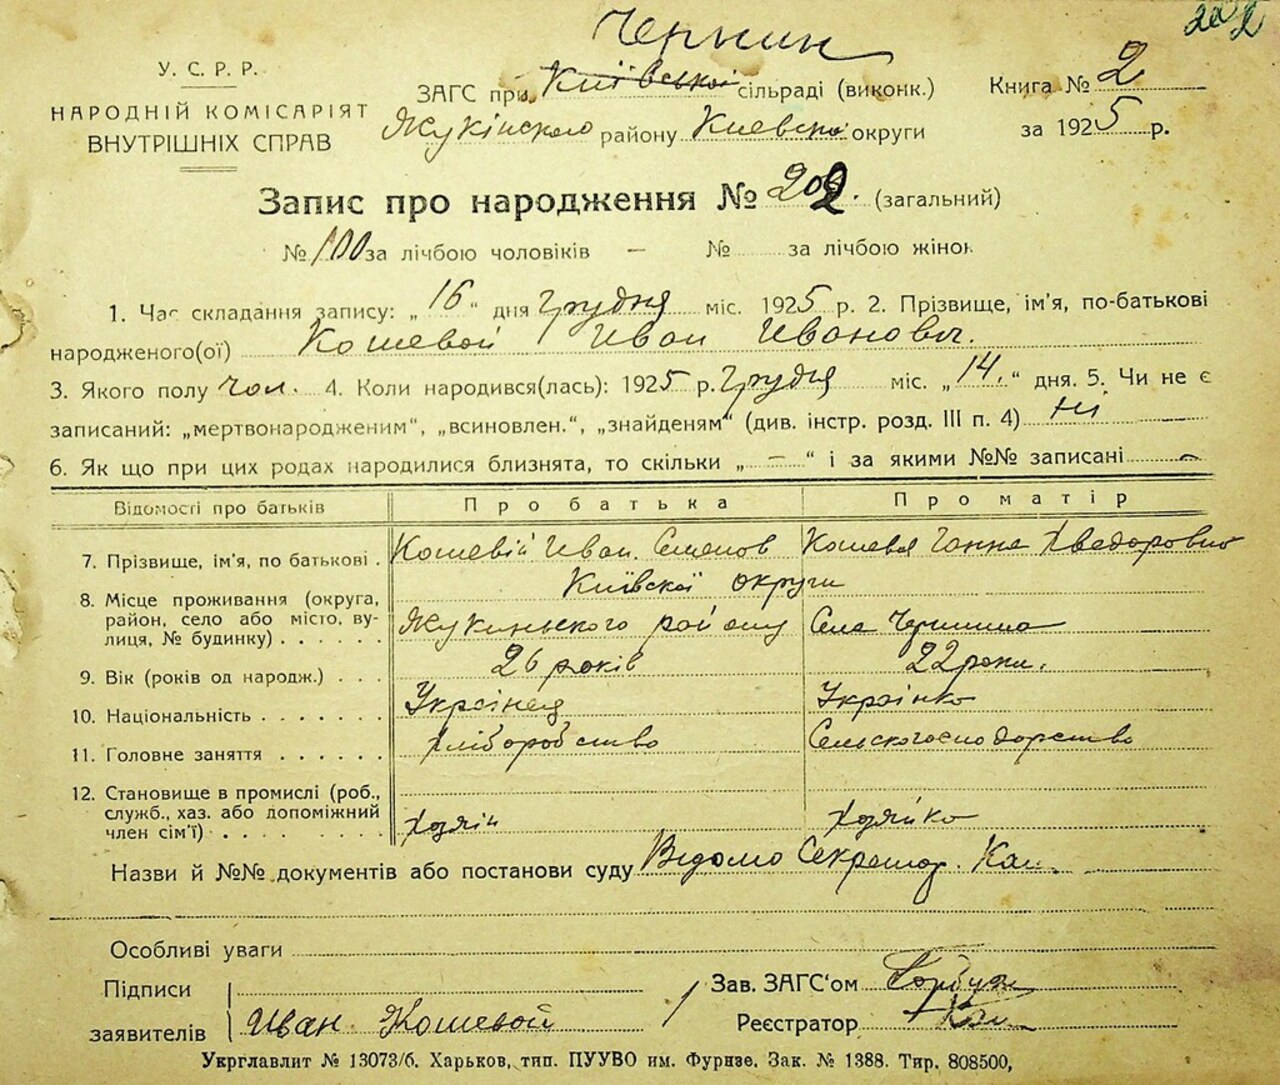 202
Чернин
У. С. Р. Р.
НАРОДНІЙ КОМІСАРІЯТ
ВНУТРІШНІХ СПРАВ
ЗАГС при Київської сільраді (виконк.)
Жукінского району Киевской округи
Книга № 2
за 1925 р.
Запис про народження № 202. (загальний)
№ 100 за лічбою чоловіків — № за лічбою жінок
1. Час складання запису: „16“ дня Грудня міс. 1925 р. 2. Прізвище, ім'я, по-батькові
народженого(ої) Кошевой Иван Иванович.
3. Якого полу чол. 4. Коли народився(лась): 1925 р. Грудня міс. „14.“ дня. 5. Чи не є
записаний: „мертвонародженим“, „всиновлен.“, „знайденям“ (див. інстр. розд. III п. 4) Ні
6. Як що при цих родах народилися близнята, то скільки „—“ і за якими №№ записані —
Відомості про батьків Про батька Про матір
7. Прізвище, ім'я, по батькові . Кошевій Иван Семенов Кошевая Ганна Хведоровно
Київскої округи
8. Місце проживання (округа, район, село або місто, вулиця, № будинку) . . . . . . Жукиньского району Села Чернина
9. Вік (років од народж.) . . . 26 років 22 роки.
10. Національність . . . . . . . Українец Українко
11. Головне заняття . . . . . . Хліборобство Сельскогосподарство
12. Становище в промислі (роб., служб., хаз. або допоміжний член сім'ї) . . . . . . . Хозяін Хозяйко
Назви й №№ документів або постанови суду Відомо Секретар.
Особливі уваги
Підписи
заявителів Иван Кошевой
Зав. ЗАГС'ом Горбуз
Реєстратор
Укрглавлит № 13073/б. Харьков, тип. ПУУВО им. Фрунзе. Зак. № 1388. Тир. 808500,